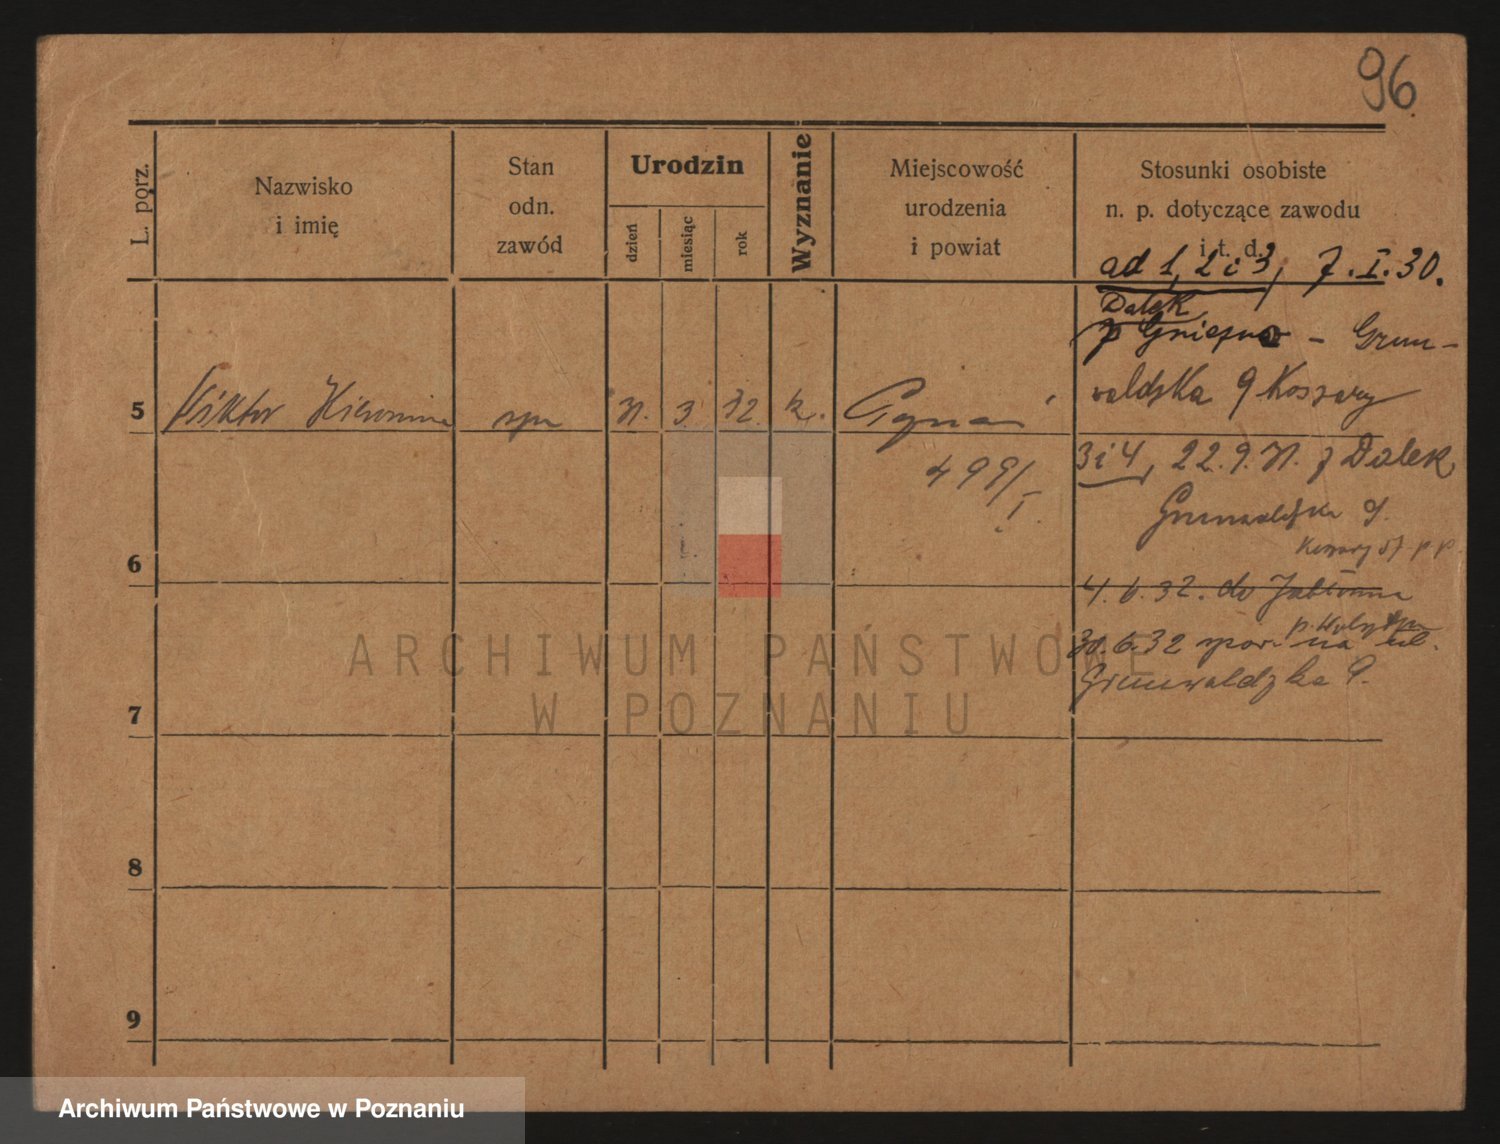 96
L. porz.
Nazwisko
i imię
Stan
odn.
zawód
Urodzin
dzień
miesiąc
rok
Wyznanie
Miejscowość
urodzenia
i powiat
Stosunki osobiste
n. p. dotyczące zawodu
i t. d.
ad 1, 2 i 3, 7. I. 30.
Dalek
p Gniezno - Grun-
waldzka 9 Koszary
5 Wiktor syn 31. 3 32. k.
499/I.
3 i 4, 22. 9. 31. z Dalek
Grunwaldzka 9.
Koszary 57 p p
6
4. 6. 32. do Jabłonna
30. 6. 32 na ul.
Grunwaldzka 9.
7
8
9
ARCHIWUM PAŃSTWOWE
W POZNANIU
Archiwum Państwowe w Poznaniu